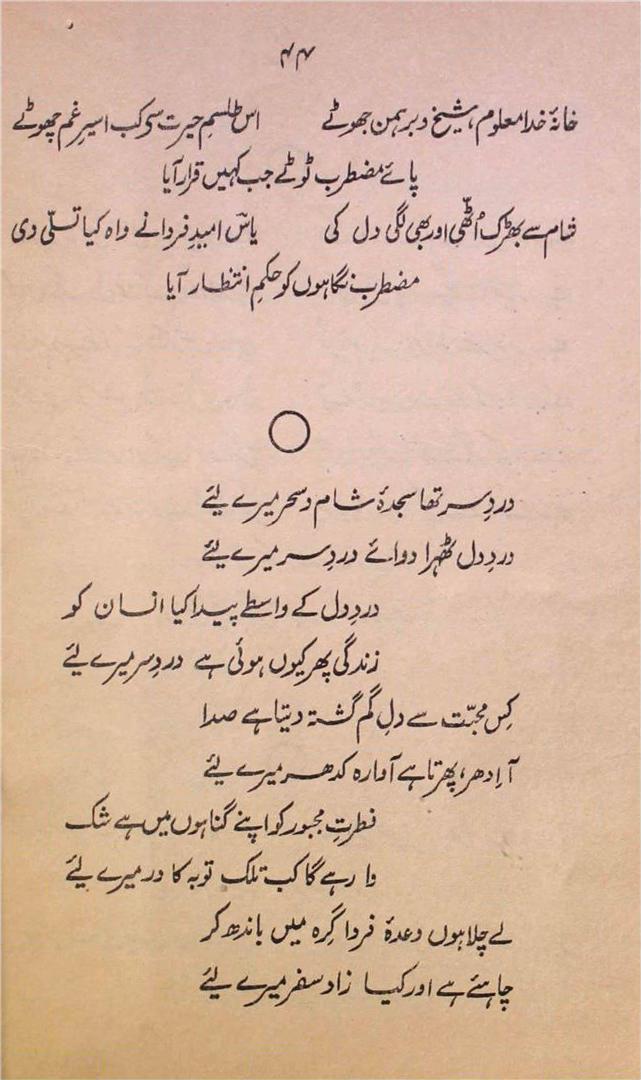 ۴۴
خانۂ خدا معلوم، شیخ و برہمن جھوٹے اس طلسمِ حیرت سے کب اسیرِ غم چھوٹے
پائے مضطرب ٹوٹے جب کہیں قرار آیا
شام سے بھڑک اُٹھی اور بھی لگی دل کی یاسؔ امیدِ فردا نے واہ کیا تسلّی دی
مضطرب نگاہوں کو حکمِ انتظار آیا
دردِ سر تھا سجدۂ شام و سحر میرے لئے
دردِ دل ٹھہرا دوائے دردِ سر میرے لئے
دردِ دل کے واسطے پیدا کیا انسان کو
زندگی پھر کیوں ہوئی ہے دردِ سر میرے لئے
کِس محبّت سے دلِ گم گشتہ دیتا ہے صدا
آ اِدھر، پھرتا ہے آوارہ کدھر میرے لئے
فطرتِ مجبور کو اپنے گناہوں میں ہے شک
وا رہے گا کب تلک توبہ کا در میرے لئے
لے چلا ہوں وعدۂ فردا گِرہ میں باندھ کر
چاہئے ہے اور کیا زادِ سفر میرے لئے